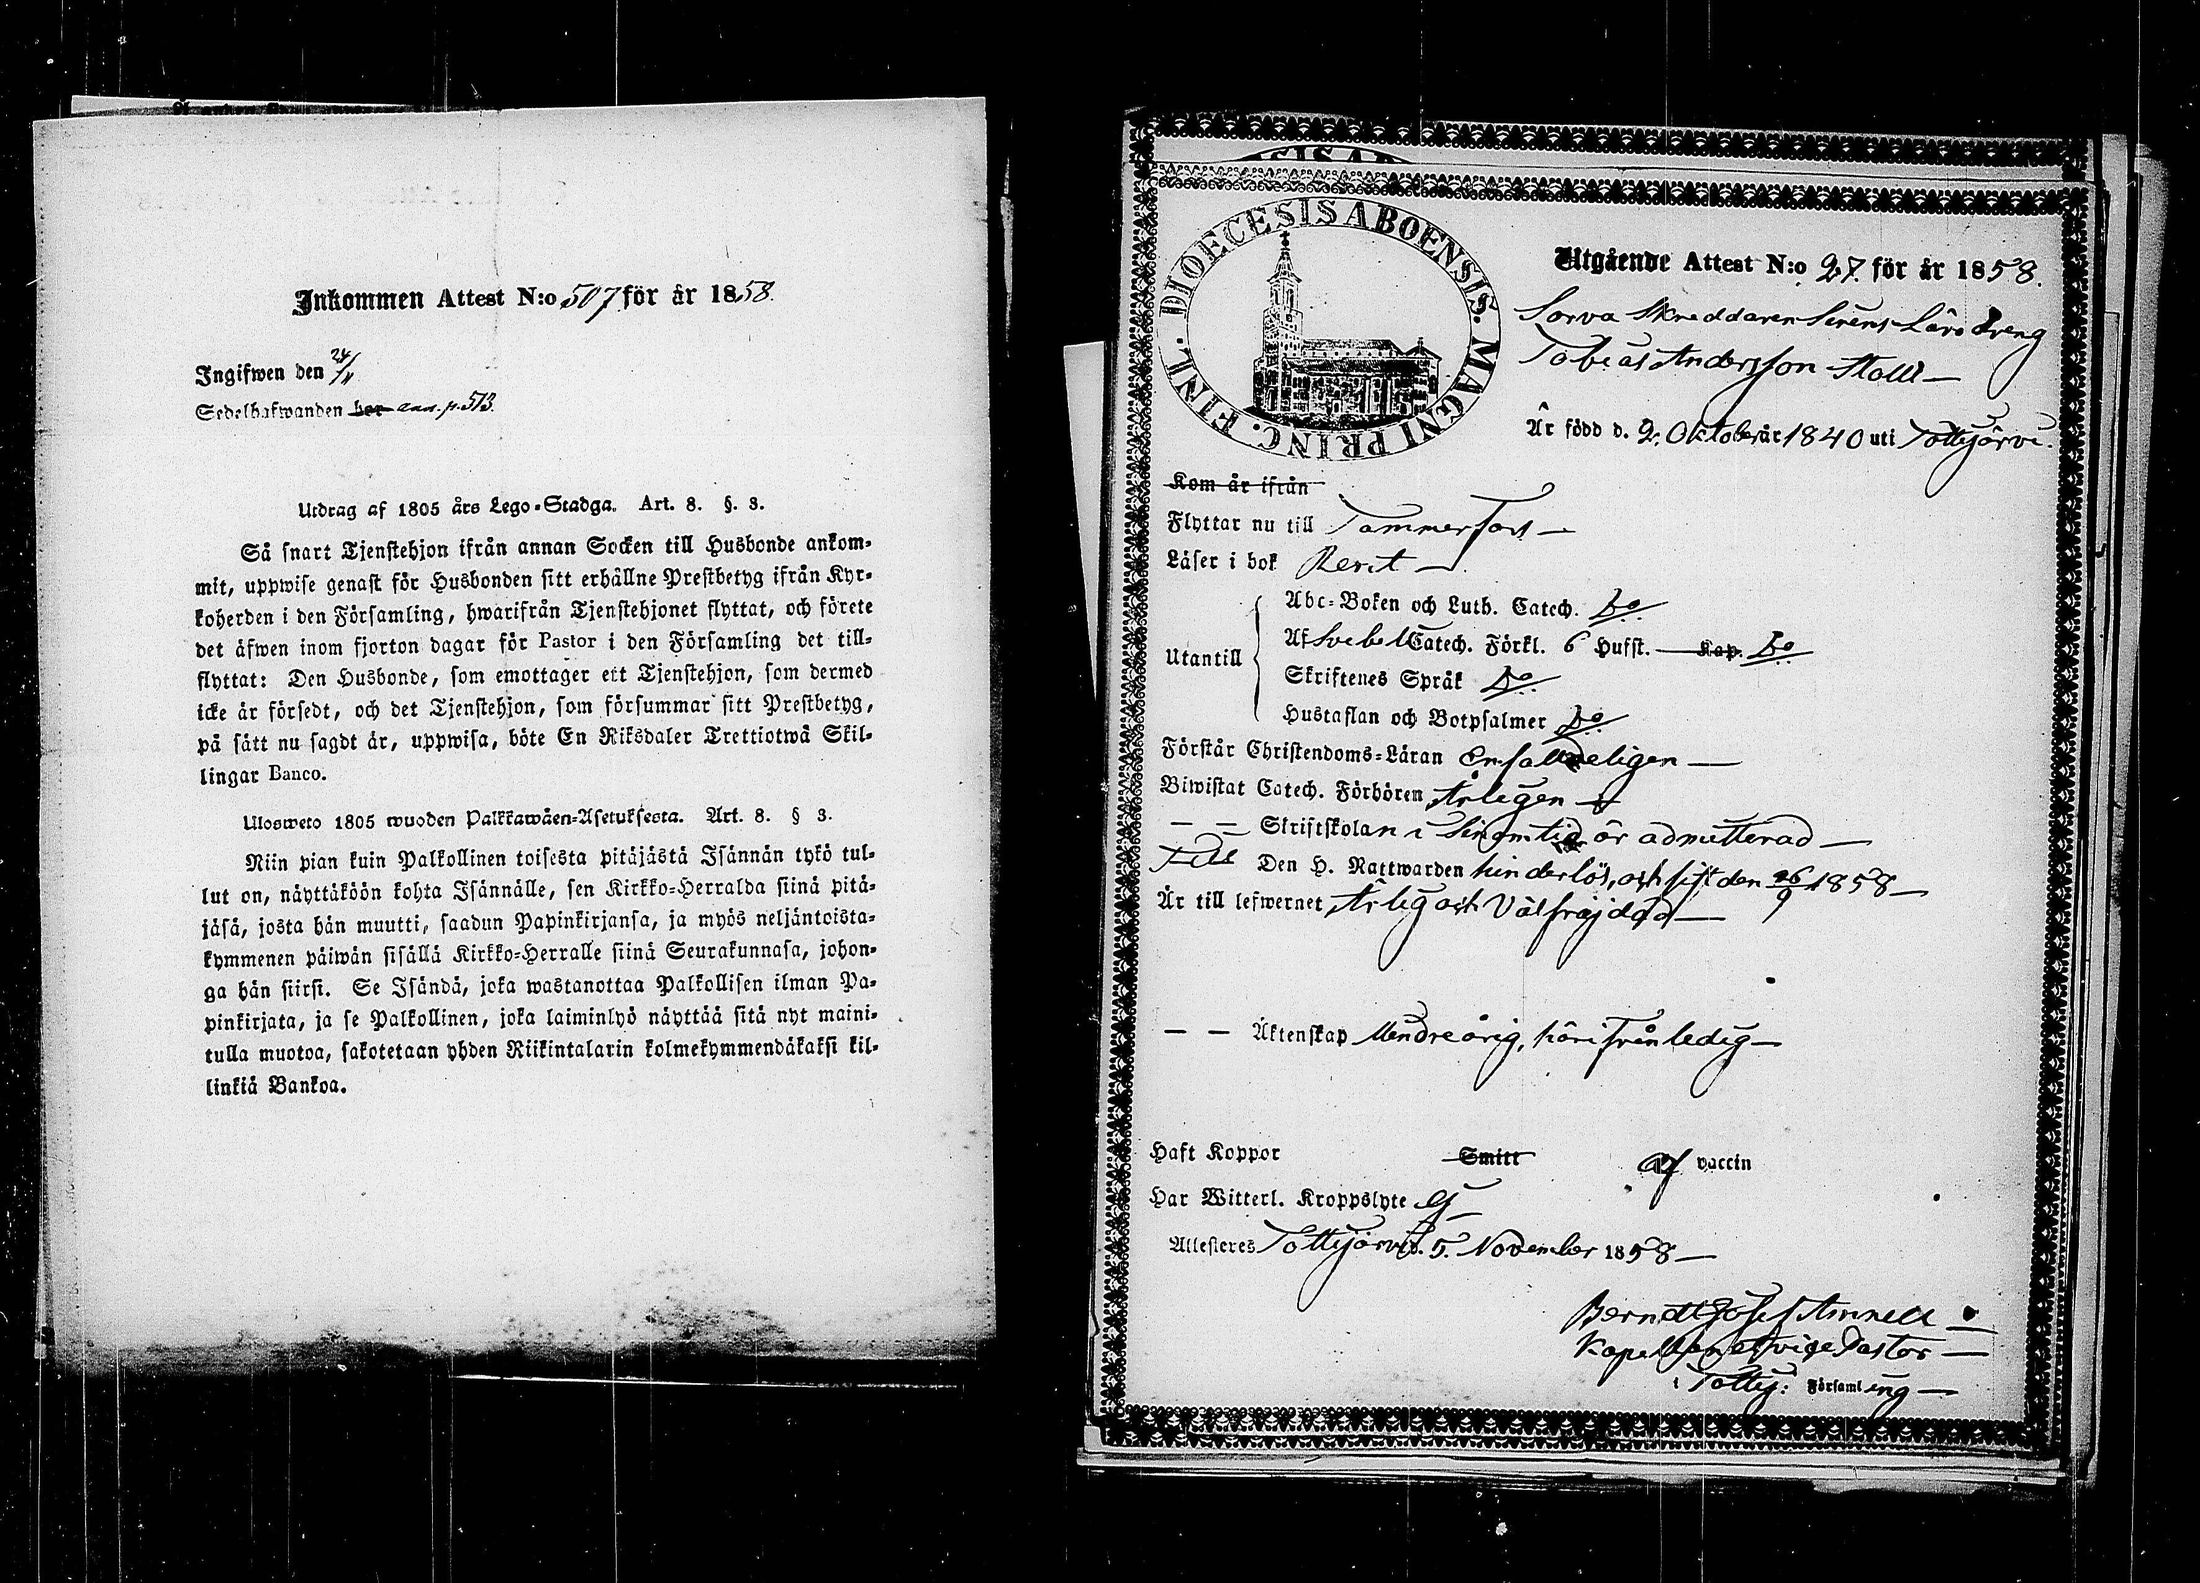 Inkommen Attest N:o 507 för år 1858.
Ingifwen den 24/11
Sedelhafwanden bor ann. p. 513.
Utdrag af 1805 års Lego-Stadga. Art. 8. §. 3.
Så snart Tjenstehjon ifrån annan Socken till Husbonde ankom-
mit, uppwise genast för Husbonden sitt erhållne Prestbetyg ifrån Kyr-
koherden i den Församling, hwarifrån Tjenstehjonet flyttat, och förete
det äfwen inom fjorton dagar för Pastor i den Församling det till-
flyttat: Den Husbonde, som emottager ett Tjenstehjon, som dermed
icke är försedt, och det Tjenstehjon, som försummar sitt Prestbetyg,
på sätt nu sagdt är, uppwisa, böte En Riksdaler Trettiotwå Skil-
lingar Banco.
Ulosweto 1805 wuoden Palkkawäen-Asetuksesta. Art. 8. § 3.
Niin pian kuin Palkollinen toisesta pitäjästä Isännän tykö tul-
lut on, näyttäköön kohta Isännälle, sen Kirkko-Herralda siinä pitä-
jäsä, josta hän muutti, saadun Papinkirjansa, ja myös neljäntoista-
kymmenen päiwän sisällä Kirkko-Herralle siinä Seurakunnasa, johon-
ga hän siirsi. Se Isändä, joka wastanottaa Palkollisen ilman Pa-
pinkirjata, ja se Palkollinen, joka laiminlyö näyttää sitä nyt maini-
tulla muotoa, sakotetaan yhden Riikintalarin kolmekymmendäkaksi kil-
linkiä Bankoa.
DIOECESIS ABOENSIS. MAGNI PRINC. FINL.
Utgående Attest N:o 27. för år 1858.
Sorva Skreddaren Lärodreng
Tobias Andersson Stoll
Är född d. 2. Oktober år 1840 uti Tottijärvi.
Kom år ifrån
Flyttar nu till Tammerfors
Läser i bok Rent
Abc-Boken och Luth. Catech. do
Af Svebell Catech. Förkl. 6 Hufst. Kap. do
Utantill
Skriftenes Språk do
Hustaflan och Botpsalmer do
Förstår Christendoms-Läran Enfaldeligen
Biwistat Catech. Förhören Årligen
Skriftskolan i sinom tid är admitterad
Till Den H. Nattwarden hinderlös, och sist den 26/9 1858
Är till lefwernet Ärlig och Välfräjdad
Äktenskap Mindreårig, härifrån ledig
Haft Koppor Smitt af vaccin
Har Witterl. Kroppslyte Ej
Attesteres Tottijärvi d. 5. November 1858
Berndt Josef Amnell
Kapellan et vice Pastor
i Tottij: Församling